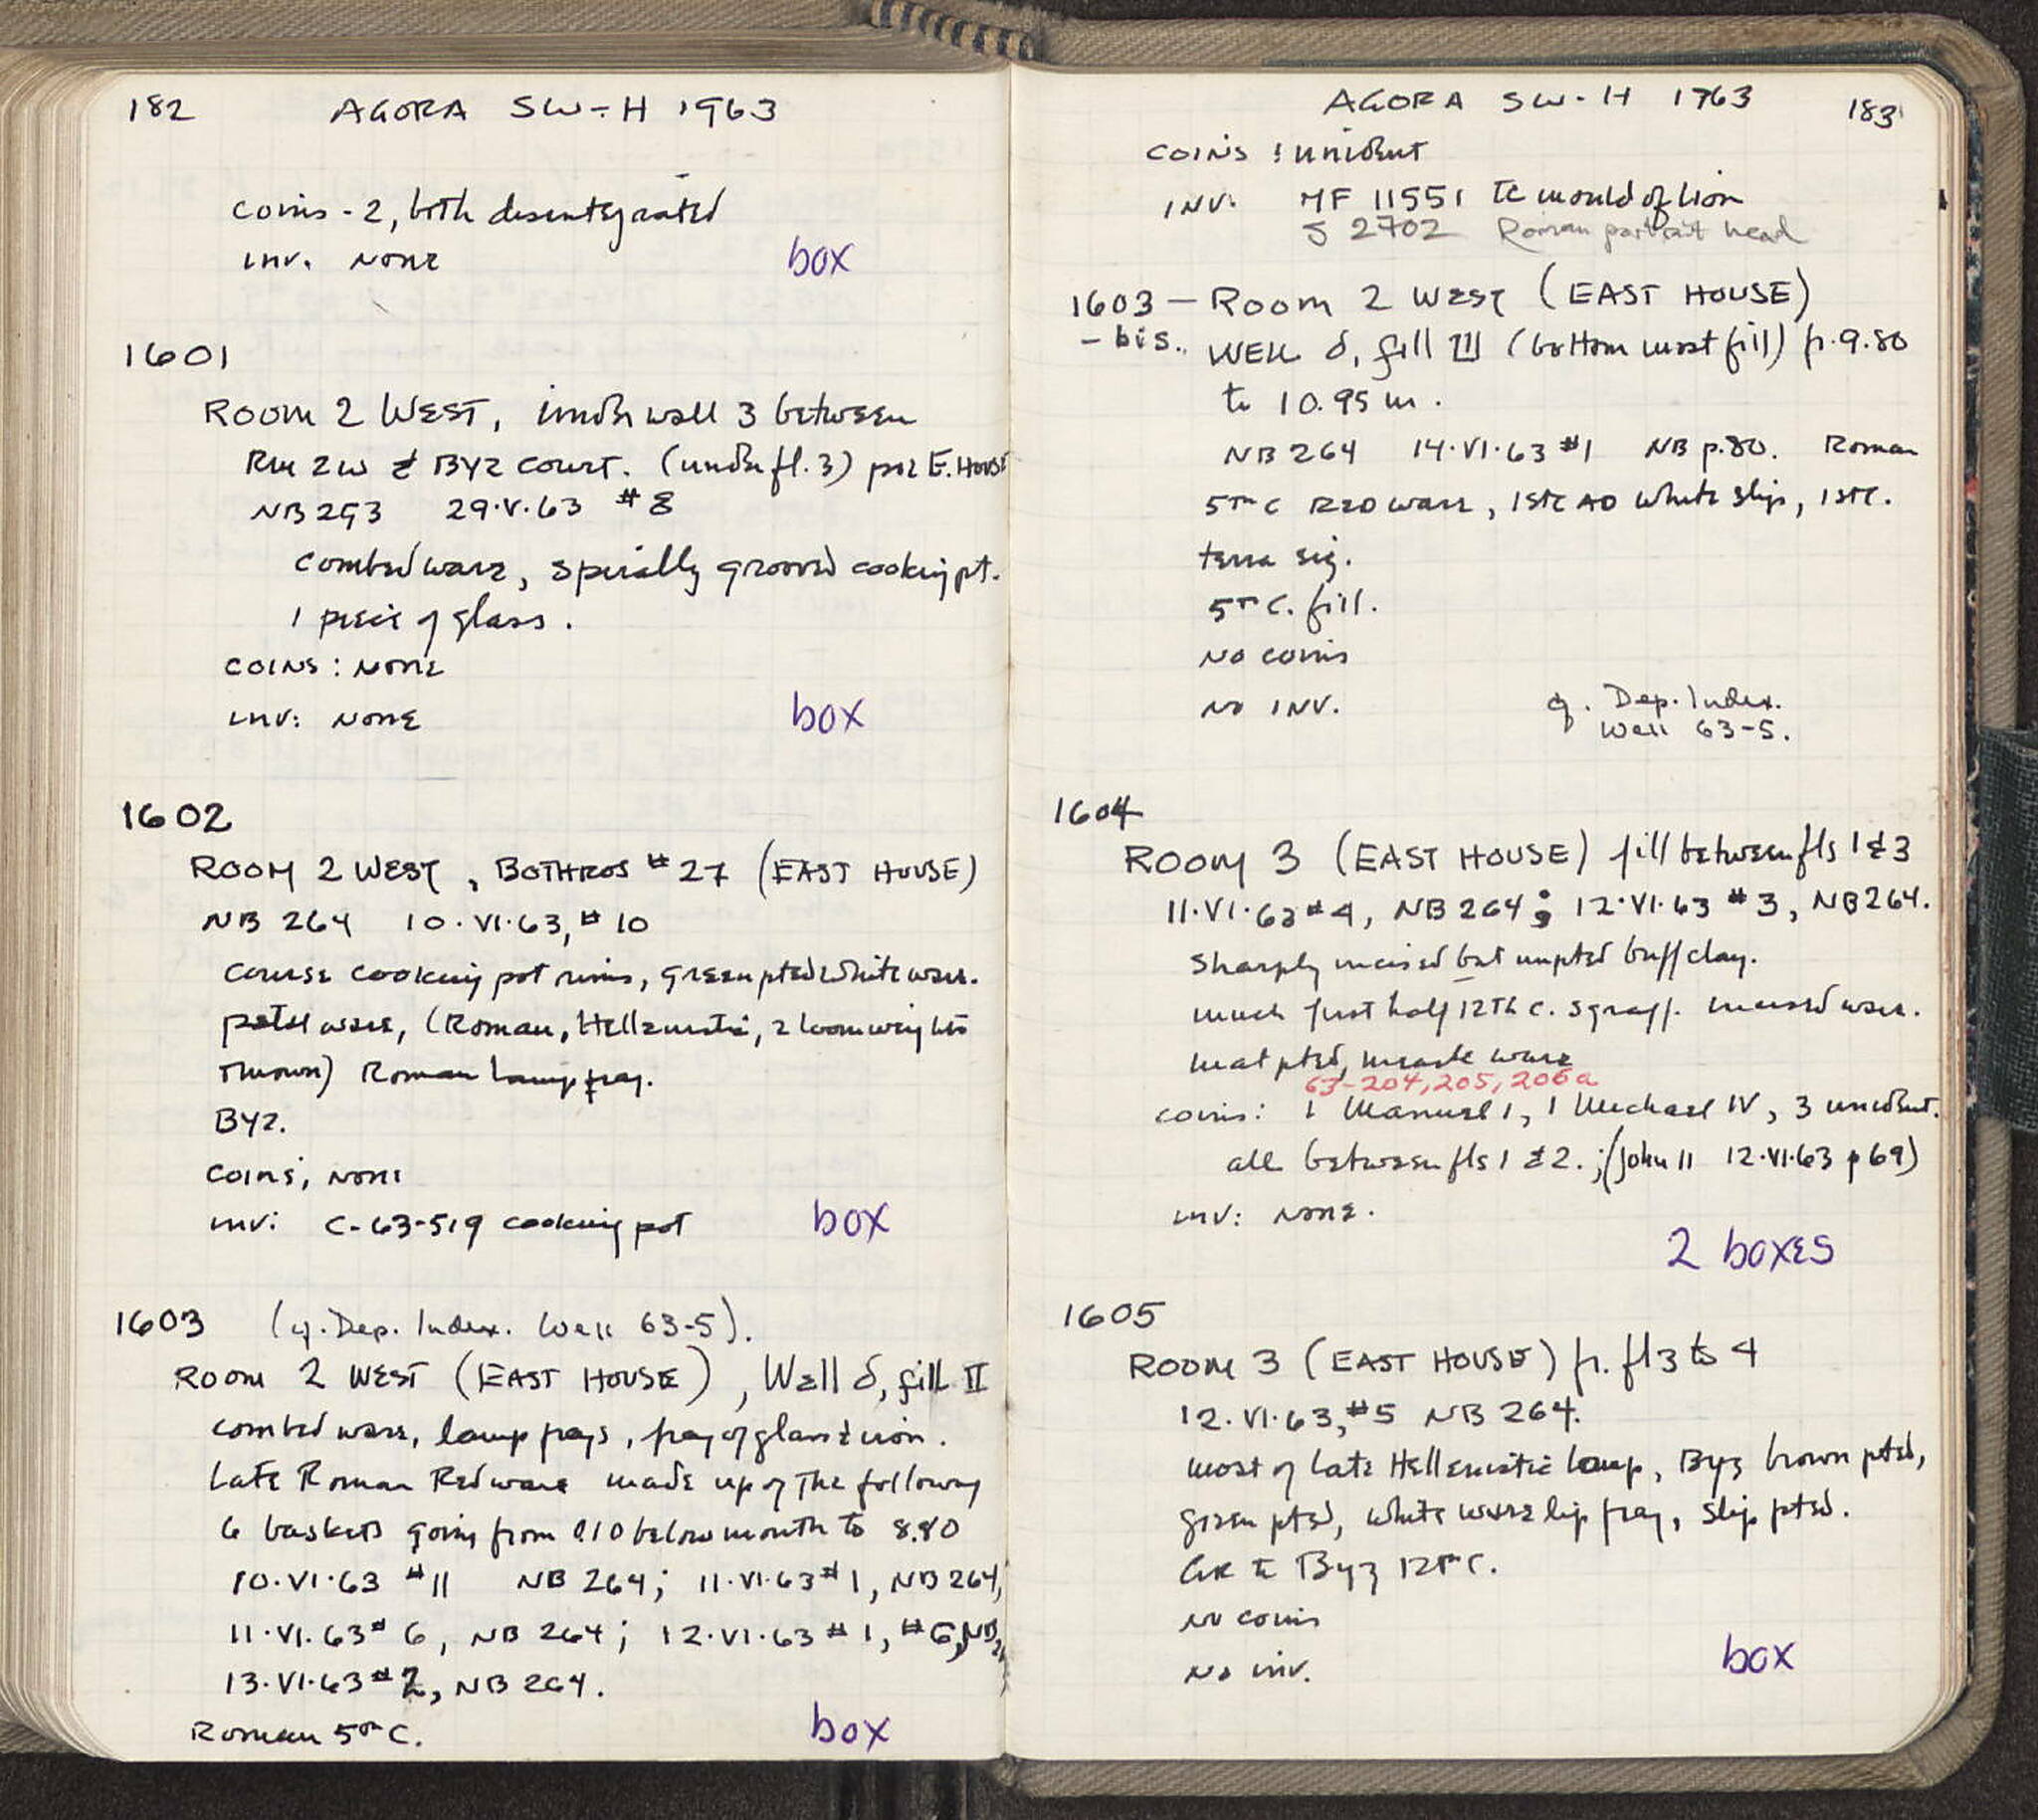 182 AGORA SW-H 1963
coins - 2, both desentegrated
inv. NONE box
1601
ROOM 2 WEST, under wall 3 between
Rm 2W & BYZ COURT. (under fl. 3) E. HOUSE
NB 263 29.V.63 #8
combed ware, spirally grooved cooking pt.
1 piece of glass.
COINS: NONE
inv: NONE box
1602
ROOM 2 WEST, BOTHROS #27 (EAST HOUSE)
NB 264 10.VI.63, #10
course cooking pot rims, green pted white ware.
ware, (Roman, Hellenistic, 2 loomweights
thrown) Roman lamp frag.
BYZ.
coins; NONE
inv: C-63-519 cooking pot box
1603 (cf. Dep. Index. Well 63-5).
ROOM 2 WEST (EAST HOUSE), Well δ, fill II
combed ware, lamp frags, frag of glass & iron.
Late Roman Redware made up of the following
6 baskets going from 0.10 below mouth to 8.80
10.VI.63 #11 NB 264; 11.VI.63 #1, NB 264,
11.VI.63 #6, NB 264; 12.VI.63 #1, #6, NB
13.VI.63 #2, NB 264.
Roman 5th C. box
AGORA SW-H 1963 183
COINS: unident
INV. MF 11551 TC mould of lion
S 2702 Roman portrait head
1603 - ROOM 2 WEST (EAST HOUSE)
- bis. WELL δ, fill III (bottom most fill) fr. 9.80
to 10.95 m.
NB 264 14.VI.63 #1 NB p.80. Roman
5th C RED ware, 1st C AD white slip, 1st C.
terra sig.
5th C. fill.
NO coins
NO INV. cf. Dep. Index.
Well 63-5.
1604
ROOM 3 (EAST HOUSE) fill between fls 1 & 3
11.VI.63 #4, NB 264; 12.VI.63 #3, NB 264.
Sharply incised but unpted buff clay.
much first half 12th C. sgraff. incised ware.
meat pted, measle ware
63-204, 205, 206a
coins: 1 Manuel I, 1 Michael IV, 3 unident.
all between fls 1 & 2. ;(John II 12.VI.63 p 69)
inv: NONE.
2 boxes
1605
ROOM 3 (EAST HOUSE) fr. fl 3 to 4
12.VI.63, #5 NB 264.
most of late Hellenistic lamp, Byz brown pted,
green pted, white ware lip frag, slip pted.
GR to Byz 12th C.
NO coins
NO inv. box